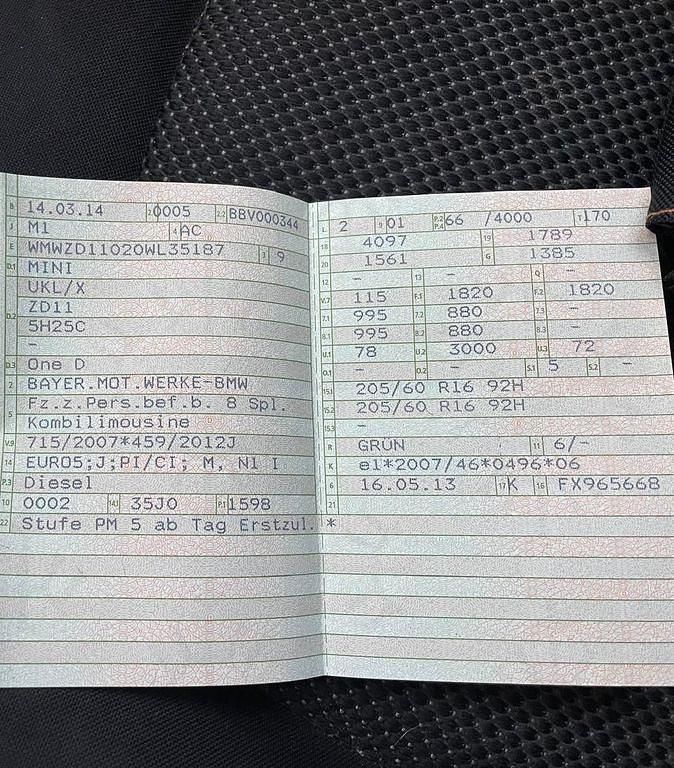 B 14.03.14 2.1 0005 2.2 BBV000344
J M1 4 AC
E WMWZD11020WL35187 3 9
D.1 MINI
UKL/X
D.2 ZD11
5H25C
-
D.3 One D
2 BAYER.MOT.WERKE-BMW
5 Fz.z.Pers.bef.b. 8 Spl.
Kombilimousine
V.9 715/2007*459/2012J
14 EURO5;J;PI/CI; M, N1 I
P.3 Diesel
10 0002 14.1 35J0 P.1 1598
22 Stufe PM 5 ab Tag Erstzul. *
L 2 9 01 P.2 P.4 66 /4000 T 170
18 4097 19 1789
20 1561 G 1385
12 - 13 - Q -
V.7 115 F.1 1820 F.2 1820
7.1 995 7.2 880 7.3 -
8.1 995 8.2 880 8.3 -
U.1 78 U.2 3000 U.3 72
O.1 - O.2 - S.1 5 S.2 -
15.1 205/60 R16 92H
15.2 205/60 R16 92H
15.3 -
R GRÜN 11 6/-
K e1*2007/46*0496*06
6 16.05.13 17 K 16 FX965668
21